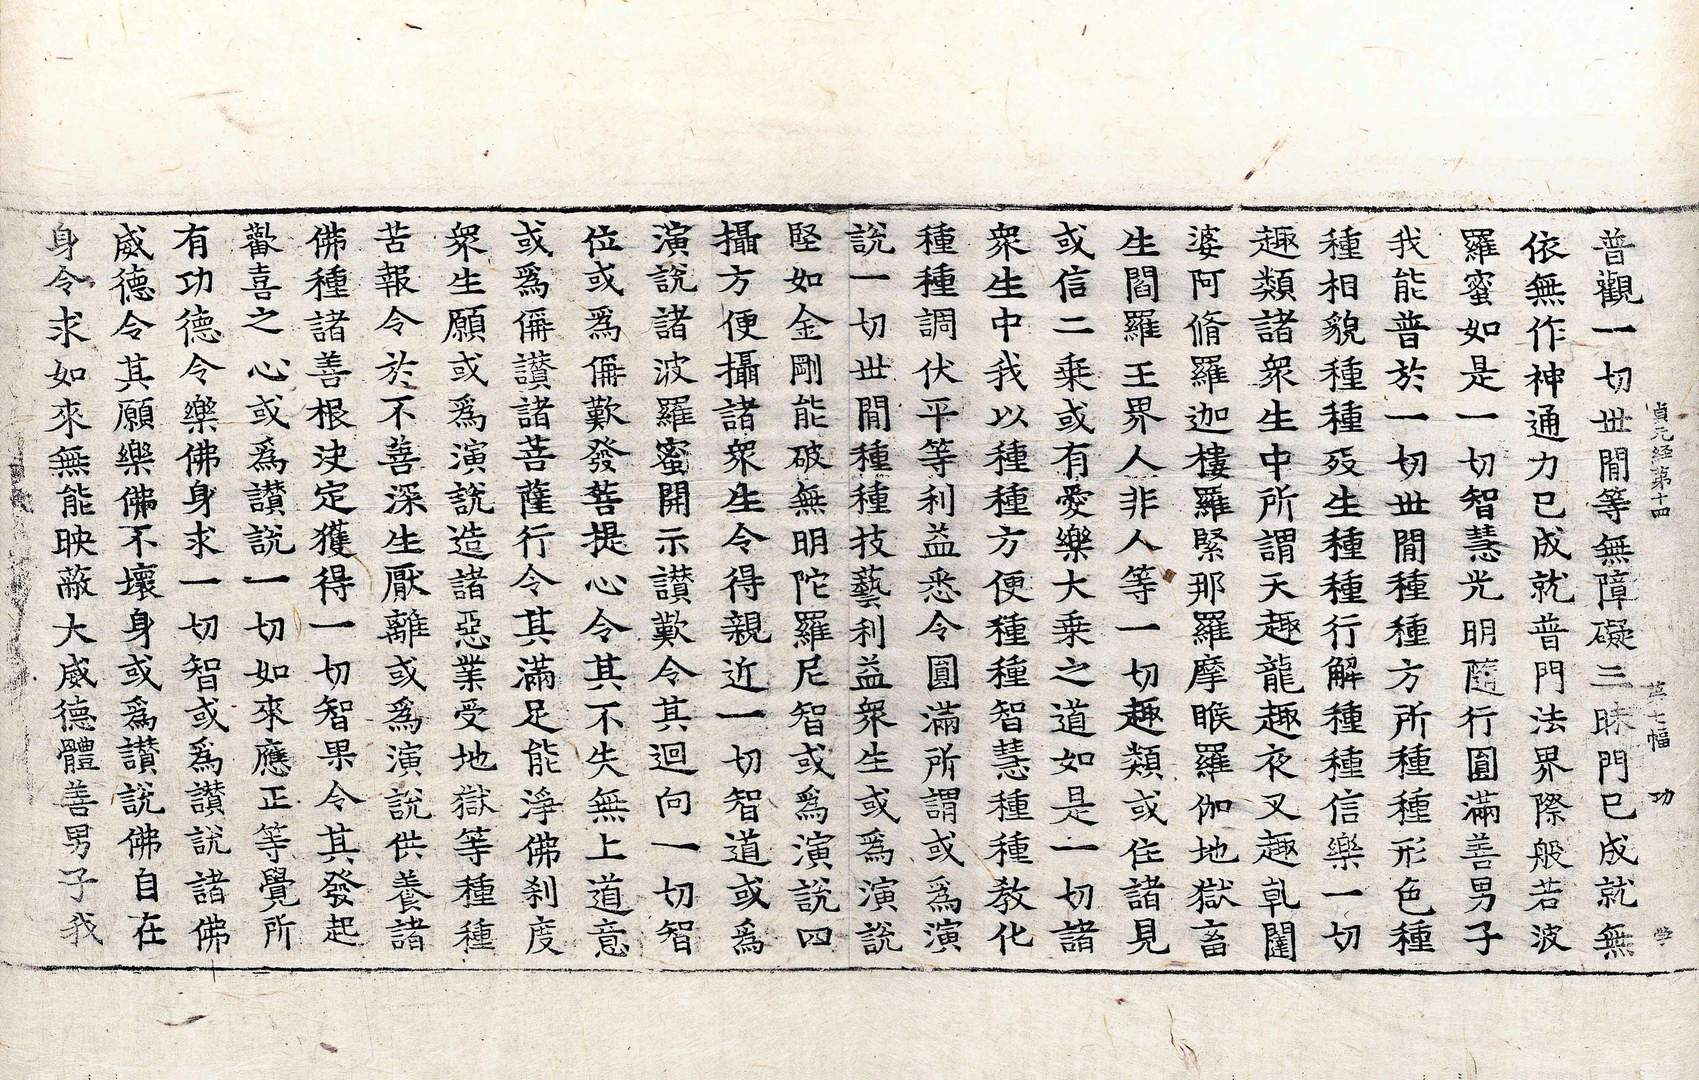 貞元經第十四 第七幅 功
普觀一切世閒等無障礙三昧門已成就無
依無作神通力已成就普門法界際般若波
羅蜜如是一切智慧光明隨行圓滿善男子
我能普於一切世閒種種方所種種形色種
種相貌種種歿生種種行解種種信樂一切
趣類諸衆生中所謂天趣龍趣夜叉趣乹闥
婆阿脩羅迦樓羅緊那羅摩睺羅伽地獄畜
生閻羅王界人非人等一切趣類或住諸見
或信二乗或有愛樂大乗之道如是一切諸
衆生中我以種種方便種種智慧種種教化
種種調伏平等利益悉令圓滿所謂或爲演
說一切世閒種種技藝利益衆生或爲演說
堅如金剛能破無明陀羅尼智或爲演說四
攝方便攝諸衆生令得親近一切智道或爲
演說諸波羅蜜開示讃歎令其迴向一切智
位或爲稱歎發菩提心令其不失無上道意
或爲稱讃諸菩薩行令其滿足能淨佛刹度
衆生願或爲演說造諸惡業受地獄等種種
苦報令於不善深生厭離或爲演說供養諸
佛種諸善根决定獲得一切智果令其發起
歡喜之心或爲讃說一切如來應正等覺所
有功德令樂佛身求一切智或爲讃說諸佛
威德令其願樂佛不壞身或爲讃說佛自在
身令求如來無能映蔽大威德體善男子我